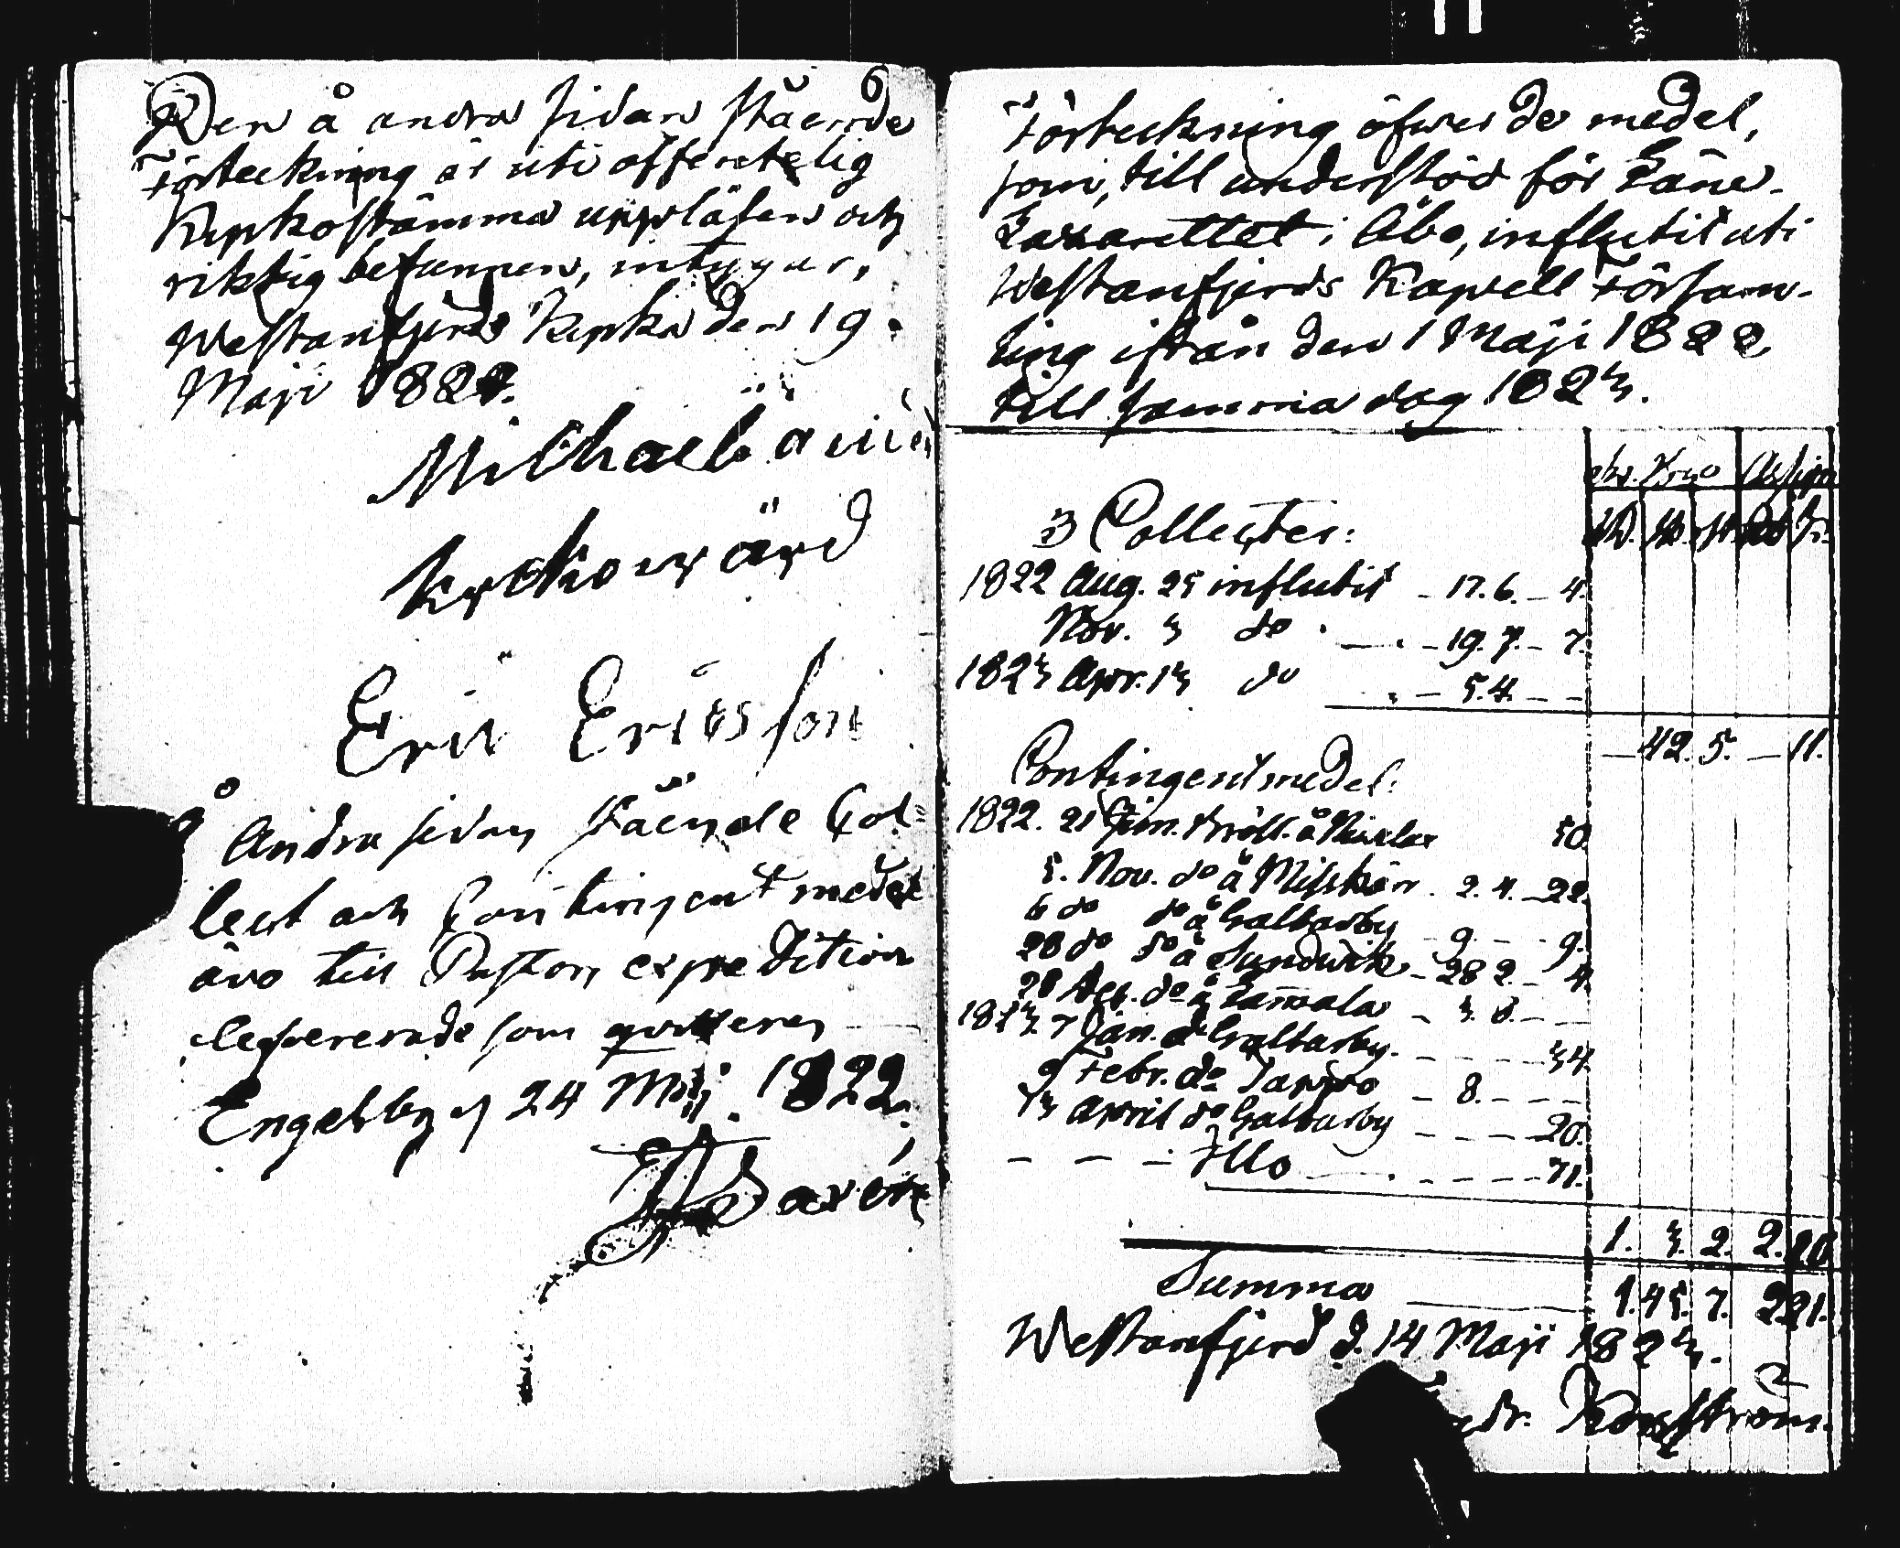 6
Den å andra sidan stående
Förteckning är uti offentelig
Kyrkostämma uppläsen och
riktig befunnen, intygar,
Westanfjerds Kyrka den 19
Maji 1822.
Michael
Kyrkowärd
Eric Ericsson
Å Andra sidan stående Col-
lect och Contingent medel
äro till Pastors expedition
lefvererade som qvitteras
Engelsby d 24 Maji 1822
Förteckning öfver de medel,
som, till understöd för Läne-
Lazarettet i Åbo, influtit uti
Westanfjerds Kapell Försam-
ling ifrån den 1 Maji 1822
till samma dag 1823.
Collecter:
1822 Aug. 25 influtit - 17. 6. - 4.
Nov. 3 do - 19. 7. - 7.
1823 Apr. 13 do - 5. 4. - -
- 42. 5. - 11.
Contingentmedel:
1822. 21 Jun. bröll. å 50.
5. Nov. do å Misskär - 2. 4. - 22.
6 do do å Galtarby - 9 - - 9.
28 do do å Sundwik - 28 2. - 4.
28 do å Lammala - 3. 6. - -
1823 7 Jan. do Galtarby. - - - - 34
9 Febr. do Tappo - 8. - - -
13 April do Galtarby - - - - 20.
- - - Illo - - - - 71.
1. 3. 2. 2. 10
Summa 1. 45. 7. 2 21.
Westanfjerd d. 14 Maji 1823.